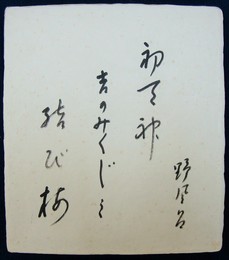 野風呂
初天神
吉のみくじを
結び梅